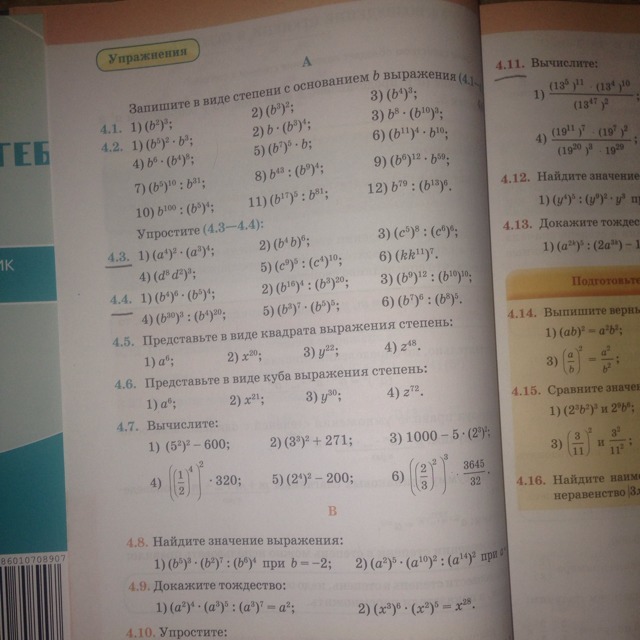 Упражнения
А
Запишите в виде степени с основанием b выражения (4.1—
4.1. 1) (b²)³; 2) (b³)²; 3) (b⁴)³;
4.2. 1) (b⁵)² · b³; 2) b · (b³)⁴; 3) b⁸ · (b¹⁰)³;
4) b⁶ · (b⁴)⁸; 5) (b⁷)⁵ · b; 6) (b¹¹)⁴ · b¹⁰;
7) (b⁵)¹⁰ : b³¹; 8) b⁴³ : (b⁹)⁴; 9) (b⁶)¹² · b⁵⁹;
10) b¹⁰⁰ : (b⁵)⁴; 11) (b¹⁷)⁵ : b⁸¹; 12) b⁷⁹ : (b¹³)⁶.
Упростите (4.3—4.4):
4.3. 1) (a⁴)² · (a³)⁴; 2) (b⁴b)⁶; 3) (c⁵)⁸ : (c⁶)⁶;
4) (d⁸d²)³; 5) (c⁹)⁵ : (c⁴)¹⁰; 6) (kk¹¹)⁷.
4.4. 1) (b⁴)⁶ · (b⁵)⁴; 2) (b¹⁶)⁴ : (b³)²⁰; 3) (b⁹)¹² : (b¹⁰)¹⁰;
4) (b³⁰)³ : (b⁴)²⁰; 5) (b³)⁷ · (b⁵)⁵; 6) (b⁷)⁵ : (b⁸)⁵.
4.5. Представьте в виде квадрата выражения степень:
1) a⁶; 2) x²⁰; 3) y²²; 4) z⁴⁸.
4.6. Представьте в виде куба выражения степень:
1) a⁶; 2) x²¹; 3) y³⁰; 4) z⁷².
4.7. Вычислите:
1) (5²)² − 600; 2) (3³)² + 271; 3) 1000 − 5 · (2³)²;
4) ((1/2)⁴)² · 320; 5) (2⁴)² − 200; 6) ((2/3)²)³ · 3645/32.
В
4.8. Найдите значение выражения:
1) (b⁵)³ · (b²)⁷ : (b⁶)⁴ при b = −2; 2) (a²)⁵ · (a¹⁰)² : (a¹⁴)² при
4.9. Докажите тождество:
1) (a²)⁴ · (a³)⁵ : (a³)⁷ = a²; 2) (x³)⁶ · (x²)⁵ = x²⁸.
4.10. Упростите:
4.11. Вычислите:
1) (13⁵)¹¹ · (13⁴)¹⁰ / (13⁴⁷)²
4) (19¹¹)⁷ · (19⁷)² / (19²⁰)³ · 19²⁹
4.12. Найдите значение
1) (y⁴)⁵ : (y⁹)² · y³
4.13. Докажите тождес
Подготовьте
4.14. Выпишите верны
1) (ab)² = a²b²;
3) (a/b)² = a²/b²;
4.15. Сравните значен
1) (2³b²)³ и 2⁹b⁶;
3) (3/11)² и 3²/11²;
4.16. Найдите наиме
неравенство |3x
ТЕБ
ИК
86010708907